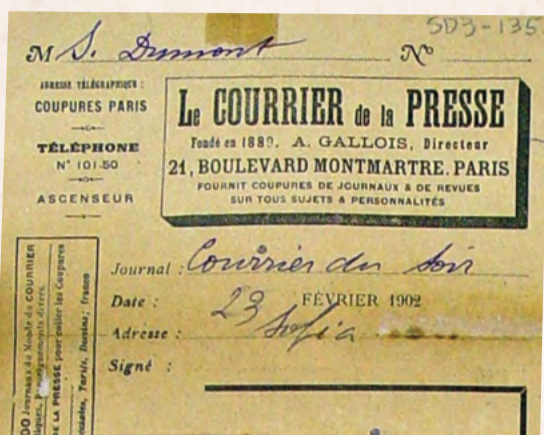 SD3-135
M S. Dumont N°
ADRESSE TÉLÉGRAPHIQUE :
COUPURES PARIS
TÉLÉPHONE
N° 101.50
ASCENSEUR
Le COURRIER de la PRESSE
Fondé en 1889. A. GALLOIS, Directeur
21, BOULEVARD MONTMARTRE. PARIS
FOURNIT COUPURES DE JOURNAUX & DE REVUES
SUR TOUS SUJETS & PERSONNALITÉS
Journal : Courrier du Soir
Date : 23 FÉVRIER 1902
Adresse : Sofia
Signé :
00 Journaux du Monde du COURRIER
iques, Renseignements divers.
DE LA PRESSE pour coller les Coupures
Tarifs, Dessins; franco